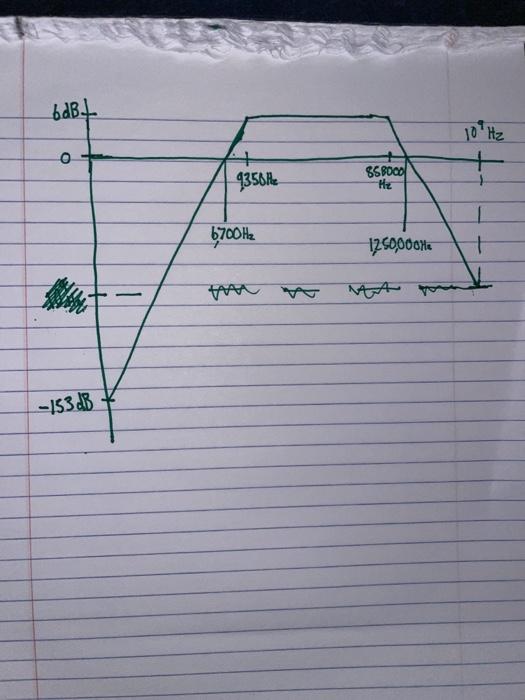 6dB
10⁹ Hz
0
9,350Hz
858000
Hz
6,700Hz
1,250,000Hz
-153dB